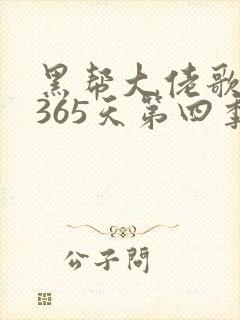 黑帮大佬歌
365天第四季
公子問